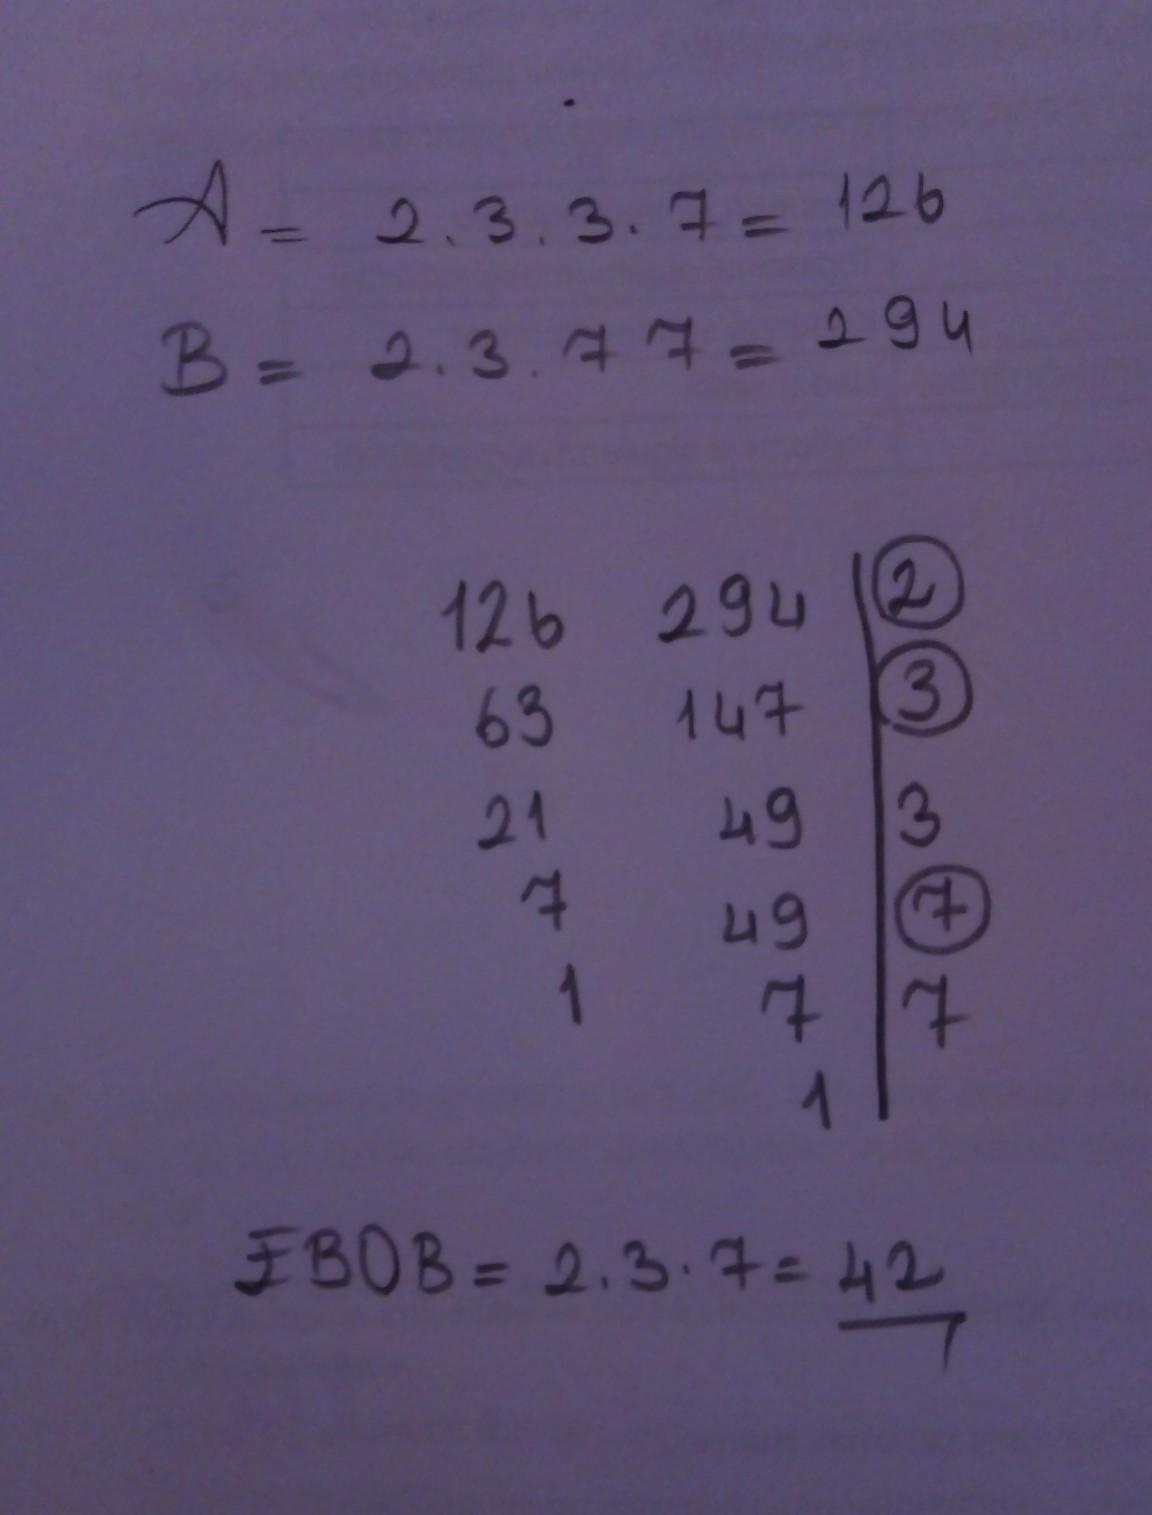 A = 2.3.3.7 = 126
B = 2.3.7 7 = 294
126 294 2
63 147 3
21 49 3
7 49 7
1 7 7
1
EBOB = 2.3.7 = 42